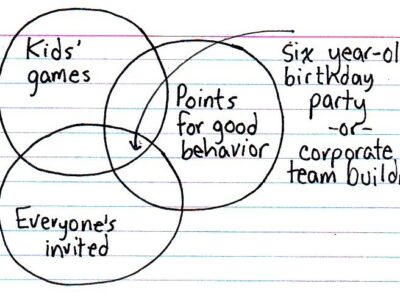 Kids'
games
Points
for good
behavior
Everyone's
invited
six year-ol
birthday
party
-or-
corporate
team build